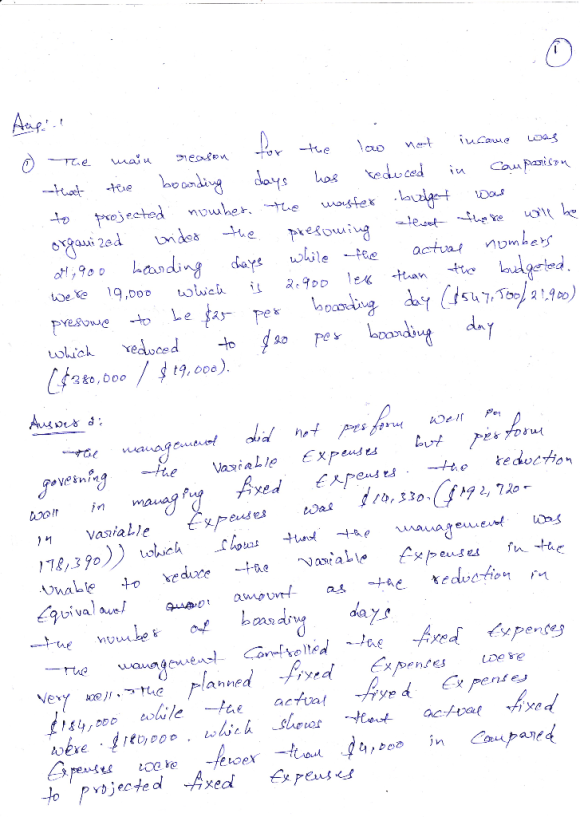 1
Ans: 1
① The main reason for the low net income was
that the boarding days has reduced in Comparison
to projected number. The master budget was
organized under the presuming that there will be
21,900 boarding days while the actual numbers
were 19,000 which is 2.900 less than the budgeted.
presume to be $25 per boarding day ($547,500/21.900)
which reduced to $20 per boarding day
($380,000 / $19,000).
Answer 2:
The management did not perform well in
governing the Variable Expenses but perform
well in managing fixed Expenses. the reduction
in variable Expenses was $14,330. ($192,720-
178,390)) which shows that the management was
unable to reduce the variable Expenses in the
Equivalanet amount as the reduction in
the number of boarding days.
The management Controlled the fixed Expenses
very well. The planned fixed Expenses were
$184,000 while the actual fixed Expenses
were $180,000. which shows that actual fixed
Expenses were fewer than $4,000 in Compared
to projected fixed Expenses